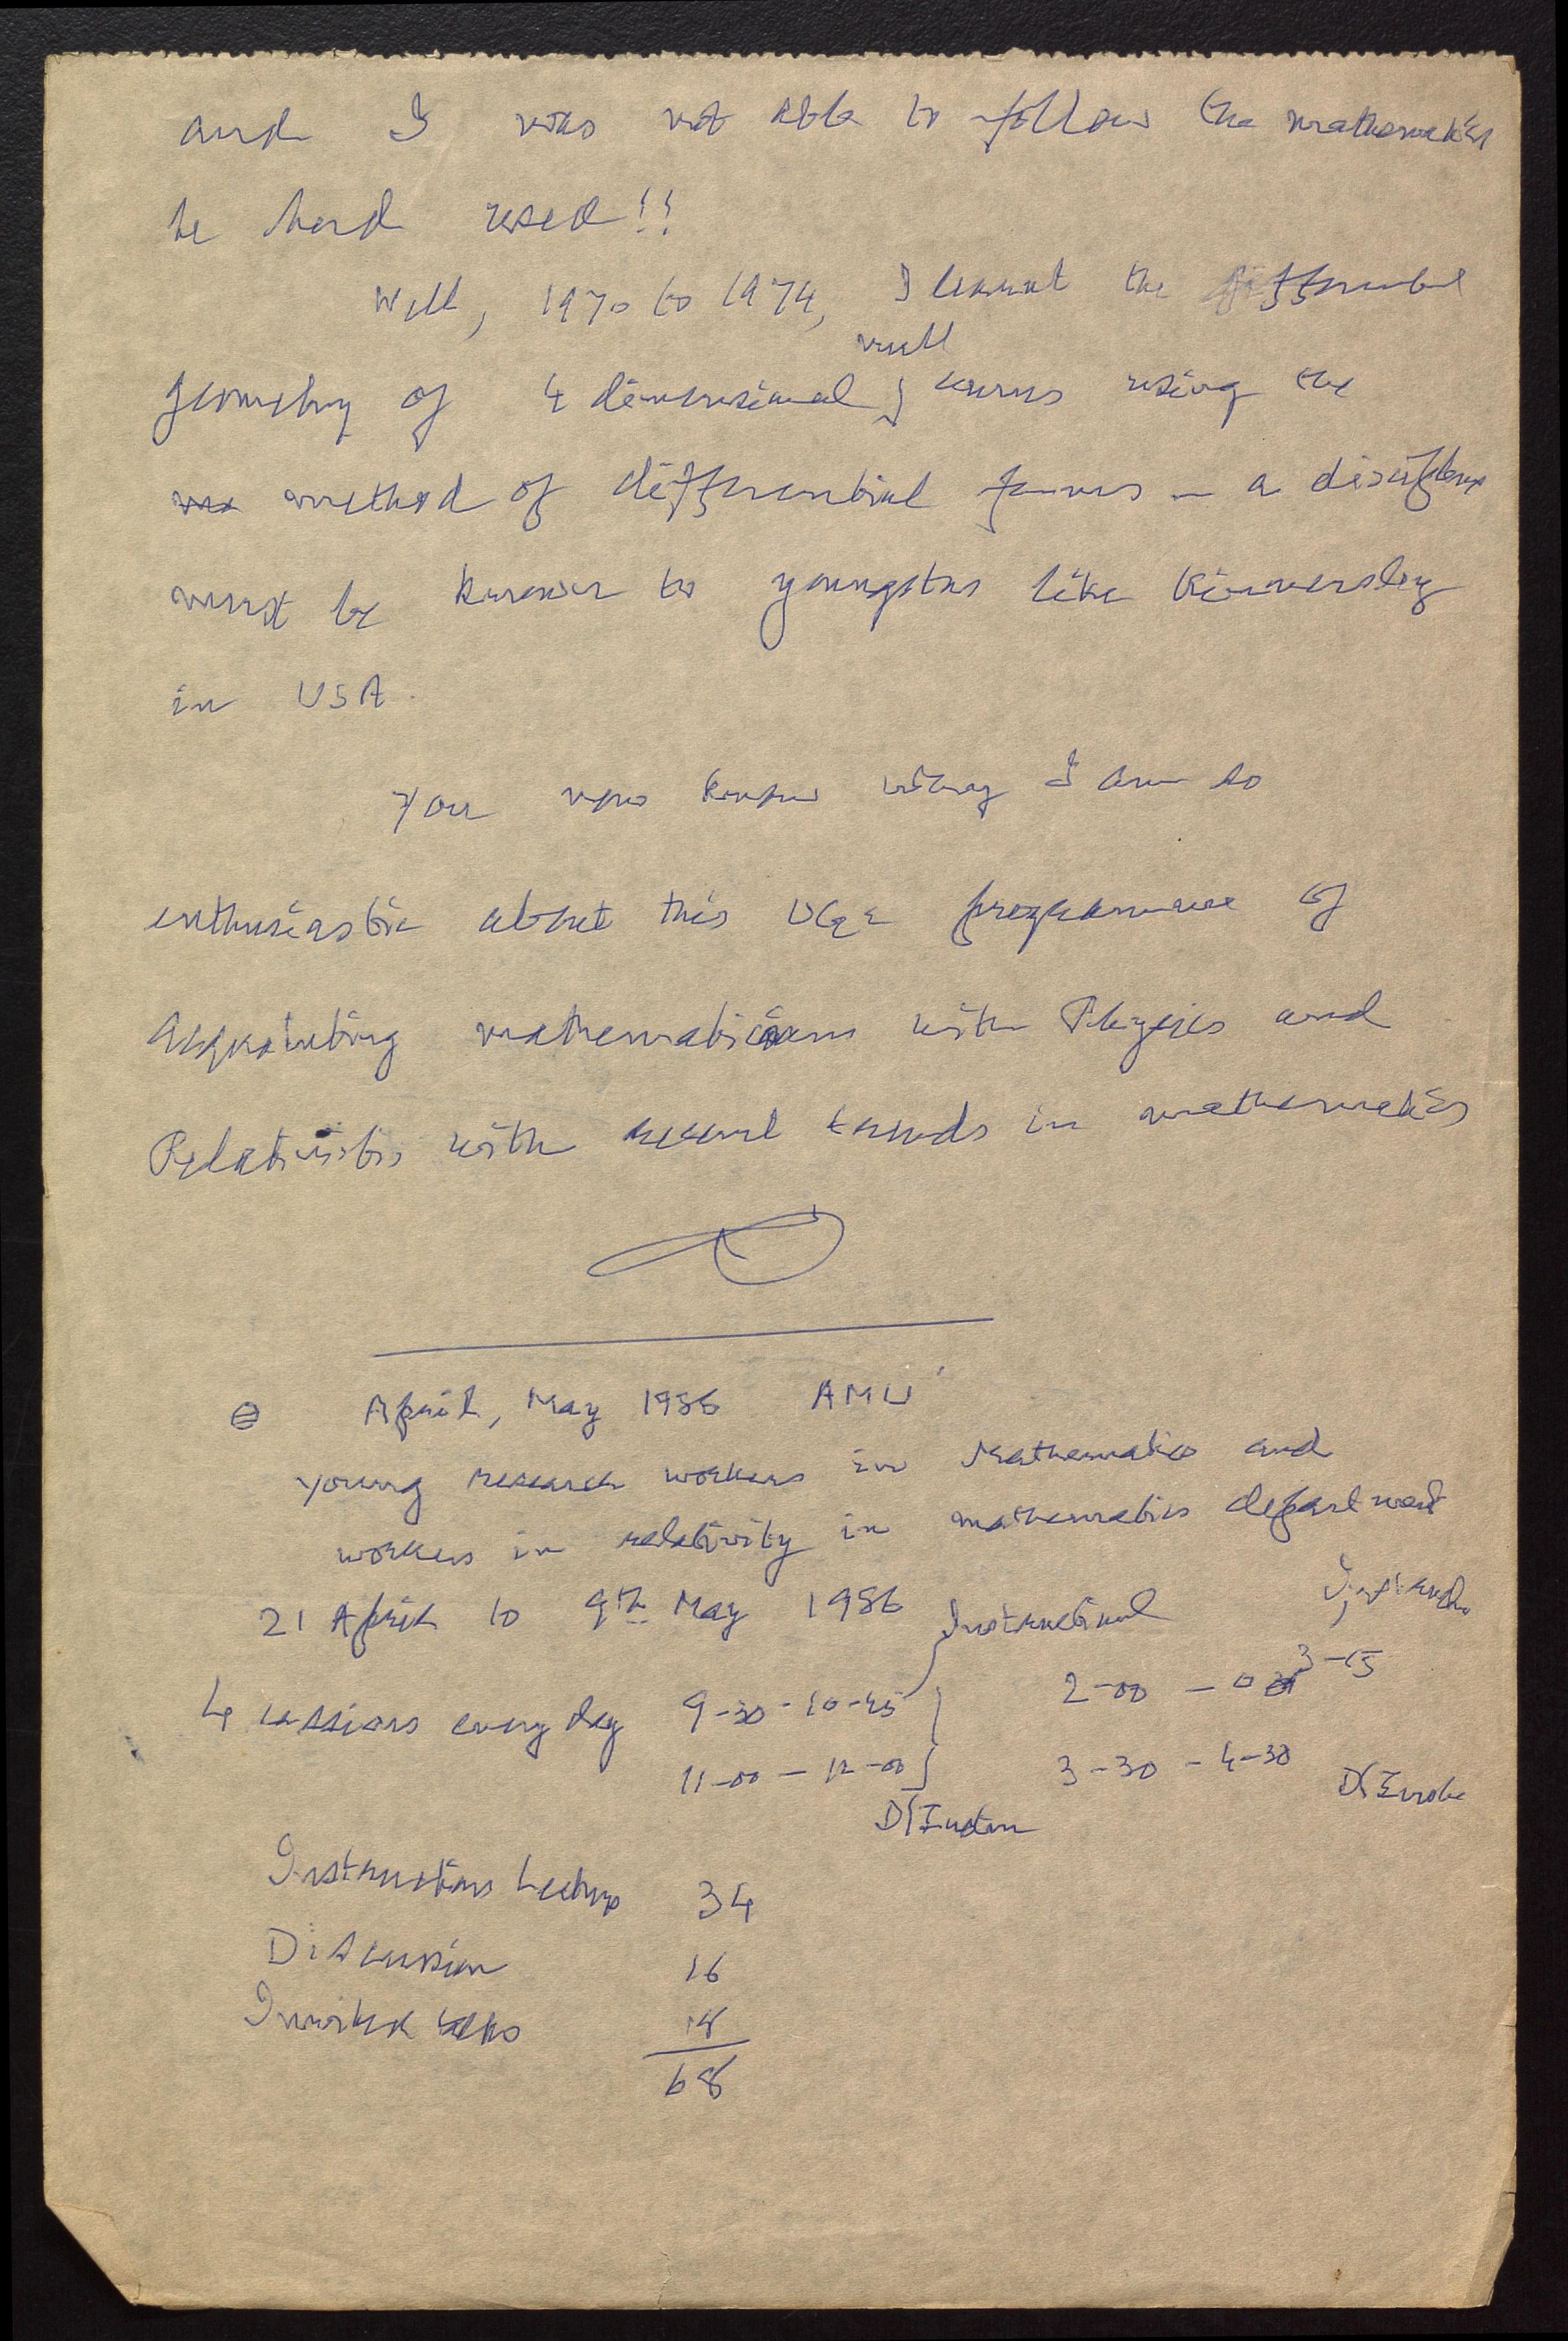 and I was not able to follow the mathematics
he had used!!
Well, 1970 to 1974, I learnt the differential
null
geometry of 4 dimensional curves using the
method of differential forms – a discipline
must be known to youngsters like Kinnersley
in USA.
You now know why I am so
enthusiastic about this UGC programme of
Acquainting mathematicians with Physics and
Relativists with recent trends in mathematics
April, May 1986 AMU
Young research workers in Mathematics and
workers in relativity in mathematics department
21 April to 9th May 1986 Instructional
4 sessions every day 9-30 - 10-45 2-00 - 3-15
11-00 - 12-00 3-30 - 4-30
Instructions Lectures 34
Discussion 16
Invited talks 18
68